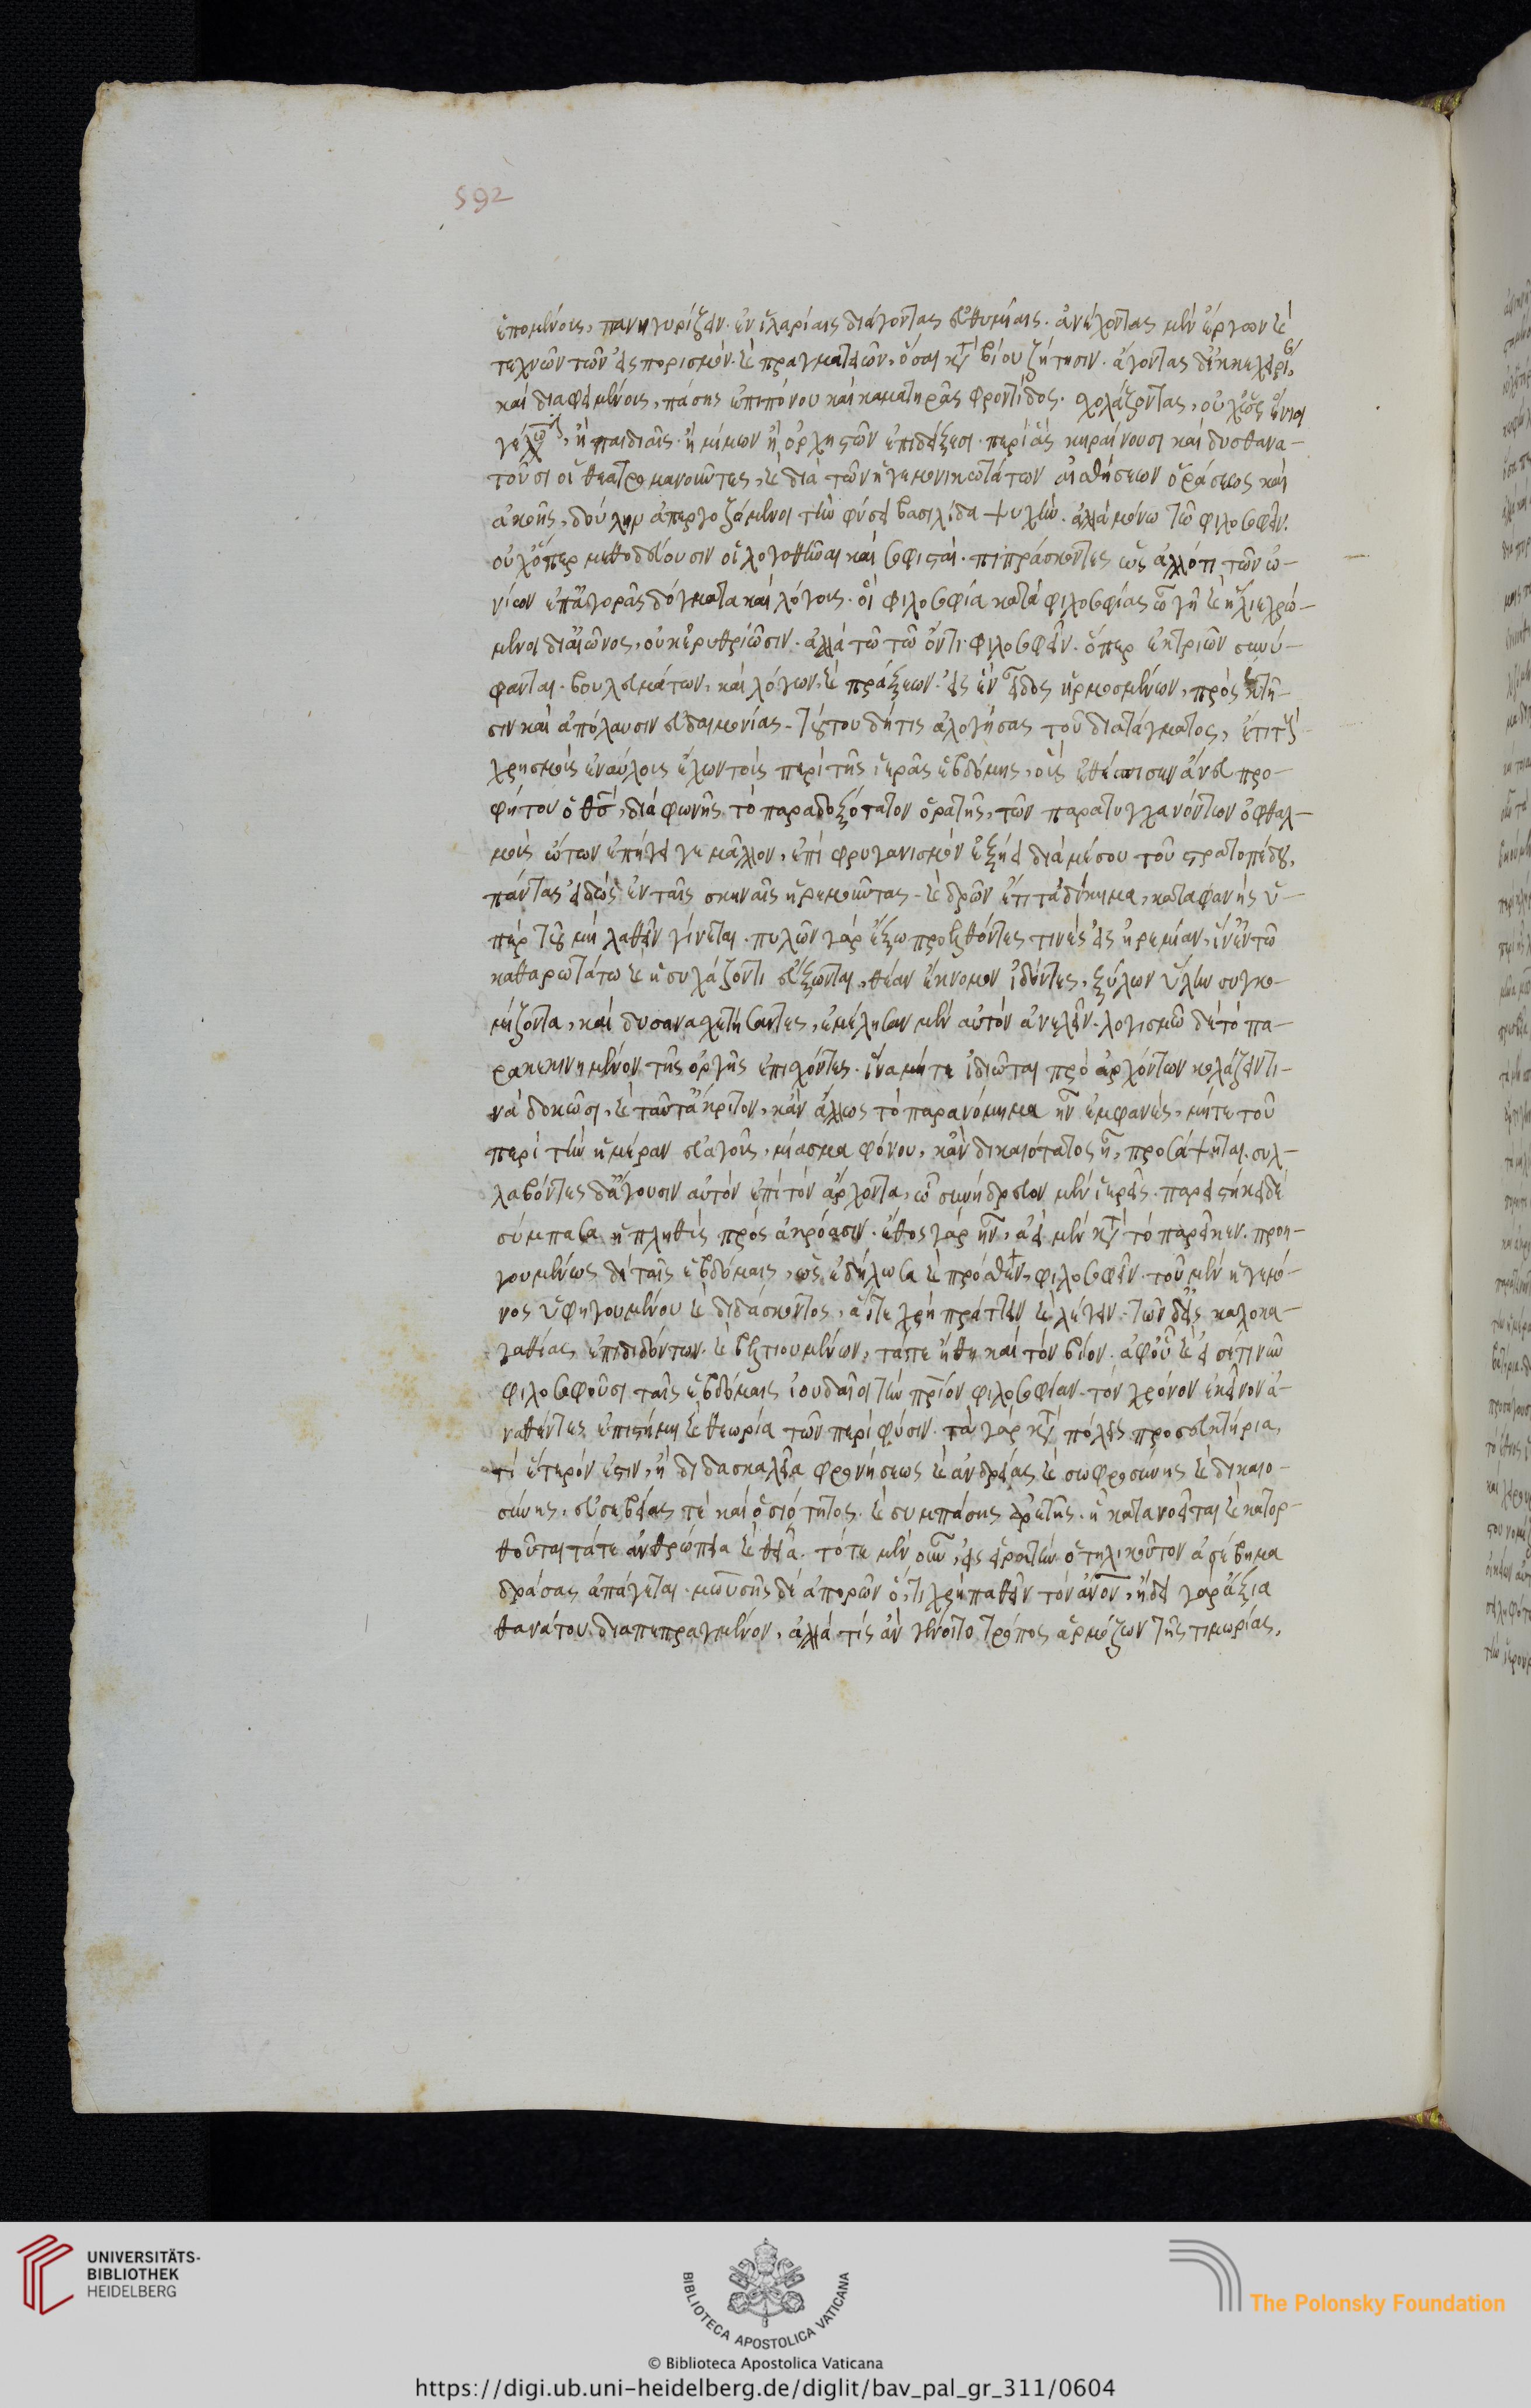 592
ἑπομένους, πανηγυρίζειν. ἐν ἱλαρίαις διάγοντας εὐθυμίαις. ἀνέχοντας μὲν ἔργων καὶ
τεχνῶν τῶν εἰς πορισμόν. καὶ πραγματειῶν, ὅσαι κατὰ βίου ζήτησιν. ἄγοντας δ᾽
καὶ διαφειμένους, πάσης ἐπιπόνου καὶ καματηρᾶς φροντίδος. σχολάζοντας, οὐχ ὡς ἔνιοι
γέλωσιν, ἢ παιδιαῖς. ἢ μίμων ἢ ὀρχηστῶν ἐπιδείξεσι. περὶ ἃς κηραίνουσι καὶ δυσθανα-
τοῦσι οἱ θεατρομανοῦντες, καὶ διὰ τῶν ἡγεμονικωτάτων αἰσθήσεων ὁράσεως καὶ
ἀκοῆς, δούλην ἀπεργαζόμενοι τὴν φύσει βασιλίδα ψυχήν. ἀλλὰ μόνω τῶ φιλοσοφεῖν.
οὐχ ὅπερ μεθοδεύουσιν οἱ λογοθῆραι καὶ σοφισταί. πιπράσκοντες ὡς ἄλλό τι τῶν ὠ-
νίων ἐπ᾽ ἀγορᾶς δόγματα καὶ λόγους. οἳ φιλοσοφία κατὰ φιλοσοφίας ὦ γῆ καὶ ἥλιε χρώ-
μενοι δι᾽ αἰῶνος, οὐκ ἐρυθριῶσιν. ἀλλὰ τῶ τῶ ὄντι φιλοσοφεῖν. ὅπερ ἐκ τριῶν συνύ-
φανται. βουλευμάτων, καὶ λόγων, καὶ πράξεων. εἰς ἓν εἶδος ἡρμοσμένων, πρὸς κτῆ-
σιν καὶ ἀπόλαυσιν εὐδαιμονίας. τούτου δή τις ἀλογήσας τοῦ διατάγματος, ἔτι τοὺς
χρησμοὺς ἐναύλους ἔχων τοὺς περὶ τῆς ἱερᾶς ἑβδόμης, οὓς ἐθέσπισεν ἄνευ προ-
φήτου ὁ θσ, διὰ φωνῆς τὸ παραδοξότατον ὁρατῆς, τῶν παρατυγχανόντων ὀφθαλ-
μοὺς ὤτων ἐπήγειρε μᾶλλον, ἐπὶ φρυγανισμὸν ἐξήει διὰ μέσου τοῦ στρατοπέδου,
πάντας εἰδὼς ἐν ταῖς σκηναῖς ἠρεμοῦντας. καὶ δρῶν ἔτι τἀδίκημα, καταφανὴς ὑ-
πὲρ τοῦ μὴ λαθεῖν γίνεται. πυλῶν γὰρ ἔξω προελθόντες τινὲς εἰς ἠρεμίαν, ἵν᾽ ἐν τῶ
καθαρωτάτω καὶ ἡσυχάζοντι εὔξωνται, θέαν ἔκνομον ἰδόντες, ξύλων ὕλην συγκο-
μίζοντα, καὶ δυσανασχετήσαντες, ἐμέλησαν μὲν αὐτὸν ἀνελεῖν. λογισμῶ δὲ τὸ πα-
ρακεκινημένον τῆς ὀργῆς ἐπισχόντες. ἵνα μήτε ἰδιῶται πρὸ ἀρχόντων κολάζειν τι-
νὰ δοκῶσι, καὶ ταῦτ᾽ ἄκριτον, κἂν ἄλλως τὸ παρανόμημα ἦν ἐμφανές, μήτε τοῦ
περὶ τὴν ἡμέραν εὐαγοῦς, μίασμα φόνου, κἂν δικαιότατος ἦ, προσάψηται. συλ-
λαβόντες δ᾽ ἄγουσιν αὐτὸν ἐπὶ τὸν ἄρχοντα, ᾧ συνήδρευον μὲν ἱερεῖς. παρειστήκει δὲ
σύμπασα ἡ πληθὺς πρὸς ἀκρόασιν. ἔθος γὰρ ἦν, ἀεὶ μὲν κατὰ τὸ παρεῖκεν. προη-
γουμένως δὲ ταῖς ἑβδόμαις, ὡς ἐδήλωσα καὶ πρόσθεν, φιλοσοφεῖν. τοῦ μὲν ἡγεμό-
νος ὑφηγουμένου καὶ διδάσκοντος, ἅττε χρὴ πράττειν καὶ λέγειν. τῶν δ᾽ εἰς καλοκα-
γαθίας ἐπιδιδόντων. καὶ βελτιουμένων, τά τε ἤθη καὶ τὸν βίον. ἀφ᾽ οὗ καὶ εἰσέτι νῦν
φιλοσοφοῦσι ταῖς ἑβδόμαις ἰουδαῖοι τὴν πριον φιλοσοφίαν. τὸν χρόνον ἐκεῖνον ἀ-
ναθέντες ἐπιστήμη καὶ θεωρία τῶν περὶ φύσιν. τὰ γὰρ κατὰ πόλεις προσευκτήρια,
τί ἕτερόν ἐστιν, ἢ διδασκαλεῖα φρονήσεως καὶ ἀνδρείας καὶ σωφροσύνης καὶ δικαιο-
σύνης, εὐσεβείας τὲ καὶ ὁσιότητος. καὶ συμπάσης ἀρετῆς. ἣ κατανοεῖται καὶ κατορ-
θοῦται τά τε ἀνθρώπεια καὶ θεῖα. τότε μὲν οὖν, εἰς εἱρκτὴν ὁ τηλικοῦτον ἀσέβημα
δράσας ἀπάγεται. μωυσῆς δὲ ἀπορῶν ὅ, τι χρὴ παθεῖν τὸν ανον, ἤδει γὰρ ἄξια
θανάτου διαπεπραγμένον, ἀλλὰ τίς ἂν γένοιτο τρόπος ἁρμόζων τῆς τιμωρίας,
UNIVERSITÄTS-
BIBLIOTHEK
HEIDELBERG
BIBLIOTECA APOSTOLICA VATICANA
The Polonsky Foundation
© Biblioteca Apostolica Vaticana
https://digi.ub.uni-heidelberg.de/diglit/bav_pal_gr_311/0604